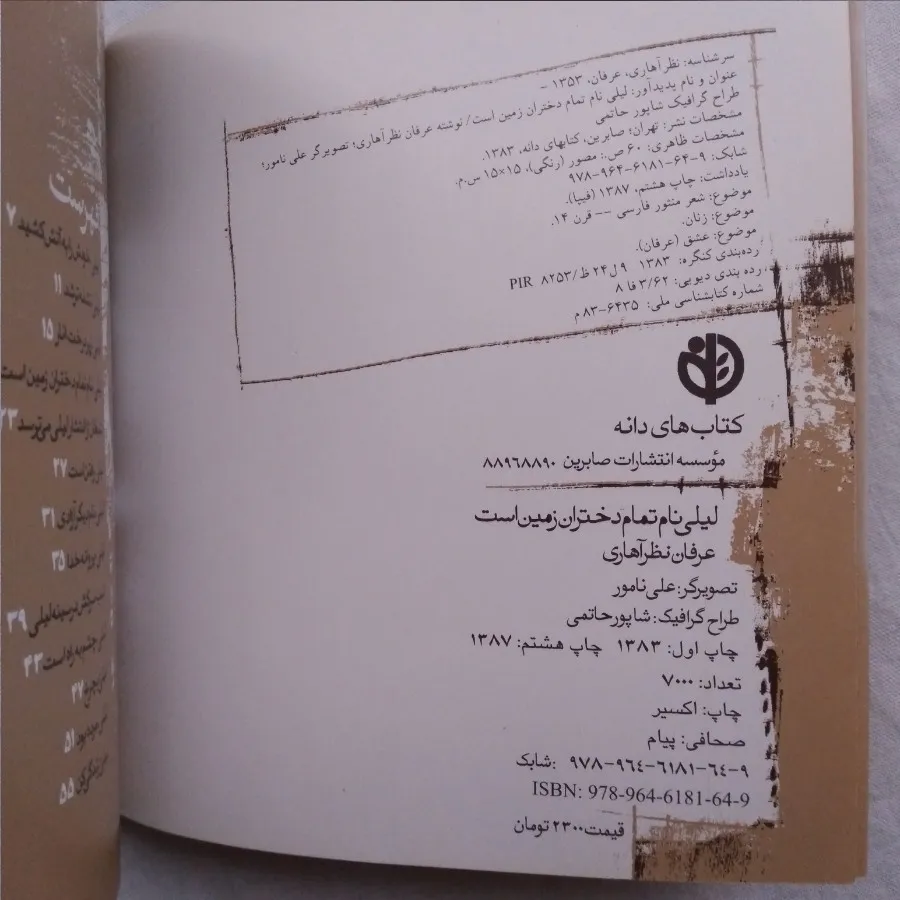 سرشناسه: نظرآهاری، عرفان، ۱۳۵۳ –
عنوان و نام پدیدآور: لیلی نام تمام دختران زمین است/ نوشته عرفان نظرآهاری؛ تصویرگر علی نامور؛
طراح گرافیک شاپور حاتمی
مشخصات نشر: تهران؛ صابرین، کتابهای دانه، ۱۳۸۳.
مشخصات ظاهری: ۶۰ ص.: مصور (رنگی)، ۱۵×۱۵ س.م.
شابک: ۹-۶۴-۶۱۸۱-۹۶۴-۹۷۸
یادداشت: چاپ هشتم، ۱۳۸۷ (فیپا).
موضوع: شعر منثور فارسی -- قرن ۱۴.
موضوع: زنان.
موضوع: عشق (عرفان).
رده‌بندی کنگره: ۱۳۸۳ ۹ل۲۴ظ/۸۲۵۳ PIR
رده بندی دیویی: ۳/۶۲ فا ۸
شماره کتابشناسی ملی: ۶۴۳۵-۸۳ م
کتاب‌های دانه
مؤسسه انتشارات صابرین ۸۸۹۶۸۸۹۰
لیلی نام تمام دختران زمین است
عرفان نظرآهاری
تصویرگر: علی نامور
طراح گرافیک: شاپور حاتمی
چاپ اول: ۱۳۸۳ چاپ هشتم: ۱۳۸۷
تعداد: ۷۰۰۰
چاپ: اکسیر
صحافی: پیام
شابک: ۹-۶۴-۶۱۸۱-۹۶۴-۹۷۸
ISBN: 978-964-6181-64-9
قیمت ۲۳۰۰ تومان
فهرست
به آتش کشید ۷
۱۱
درخت انار ۱۵
نام تمام دختران زمین است
از انتشار لیلی می‌ترسد ۲۳
است ۲۷
دیگر آزادی ۳۱
پروانه خدا ۳۵
سینه لیلی ۳۹
چشم به راه است ۴۳
۴۷
۵۱
۵۵